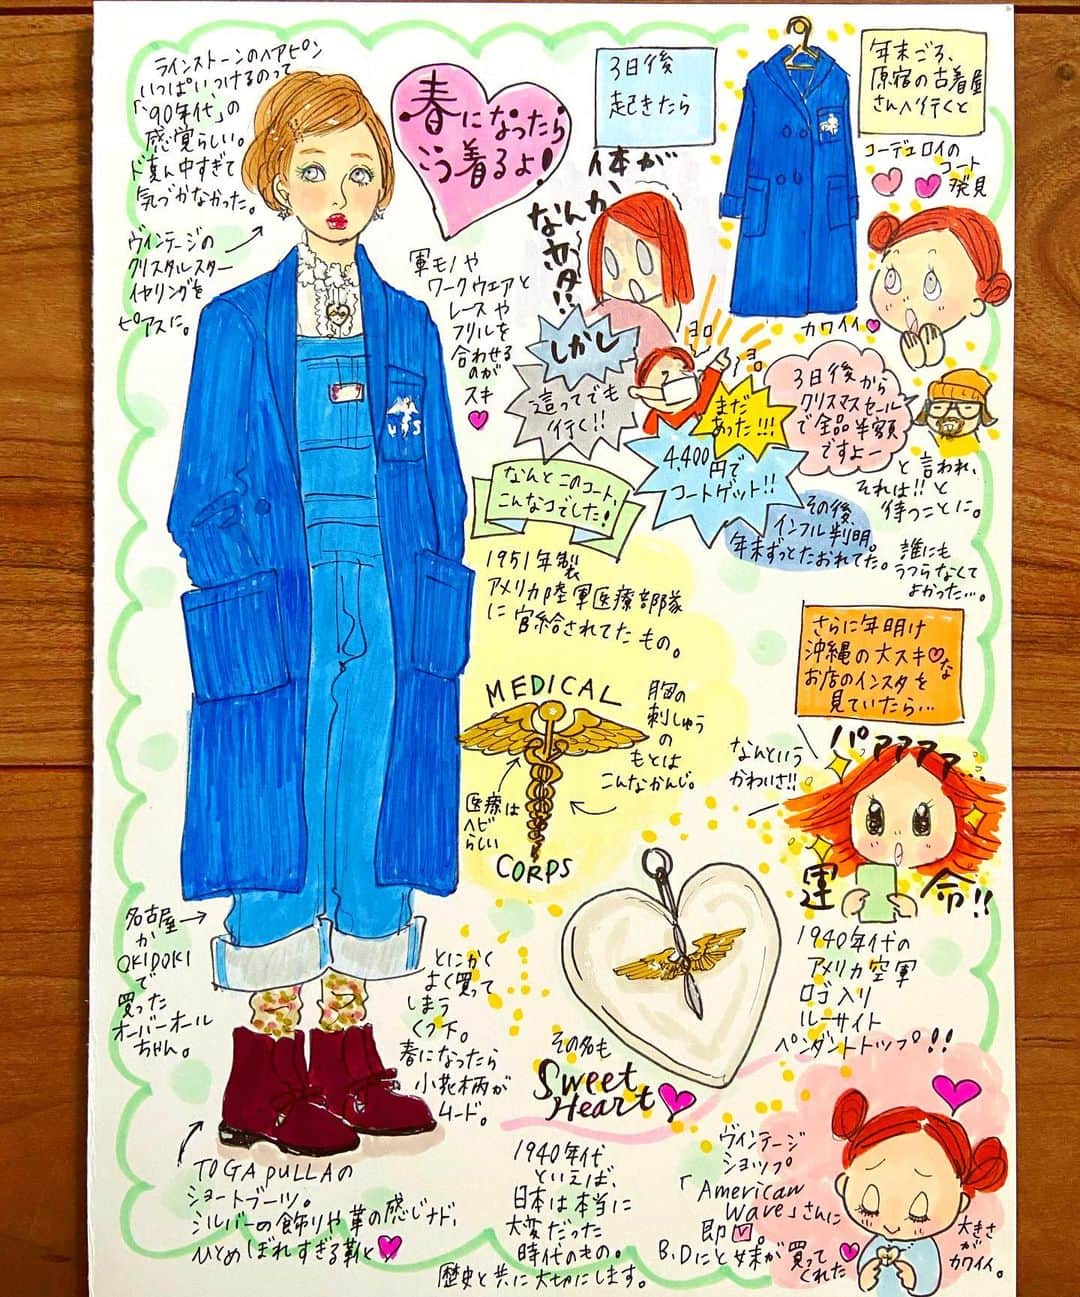 ラインストーンのヘアピン
いっぱいつけるのって
「'90年代」の
感覚らしい。
ド真ん中すぎて
気づかなかった。
ヴィンテージの
クリスタルスター
イヤリングを
ピアスに。
春になったら
こう着るよ!
軍モノや
ワークウェアと
レースや
フリルを
合わせる
のが
スキ
年末ごろ、
原宿の古着屋
さんへ行くと
コーデュロイの
コート
発見
カワイイ
3日後から
クリスマスセール
で全品半額
ですよー
と言われ、
それは!!と
待つことに。
3日後
起きたら
体が
なんか、
変ダ!!
しかし
這ってでも
行く!!
ヨロ
ヨロ
まだ
あった!!!
4,400円で
コートゲット!!
その後、
インフル判明。
年末ずっとたおれてた。
誰にも
うつらなくて
よかった…。
なんとこのコート、
こんなコでした!
1951年製
アメリカ陸軍医療部隊
に官給されてたもの。
MEDICAL
CORPS
胸の
刺しゅう
の
もとは
こんなかんじ。
医療は
ヘビ
らしい
U S
さらに年明け
沖縄の大スキな
お店のインスタを
見ていたら…
パァァァァ…
なんという
かわいさ!!
運命!!
1940年代の
アメリカ空軍
ロゴ入り
ルーサイト
ペンダントトップ!!
その名も
Sweet
Heart
1940年代
といえば、
日本は本当に
大変だった
時代のもの。
歴史と共に大切にします。
ヴィンテージ
ショップ
「American
Wave」さんに
即。
B.Dにと妹が買って
くれた
大きさ
が
カワイイ。
名古屋
か
OKIDOKI
で
買った
オーバーオール
ちゃん。
とにかく
よく買って
しまう
くつ下。
春になったら
小花柄が
ムード。
TOGA PULLAの
ショートブーツ。
シルバーの飾りや革の感じナド、
ひとめぼれすぎる靴と